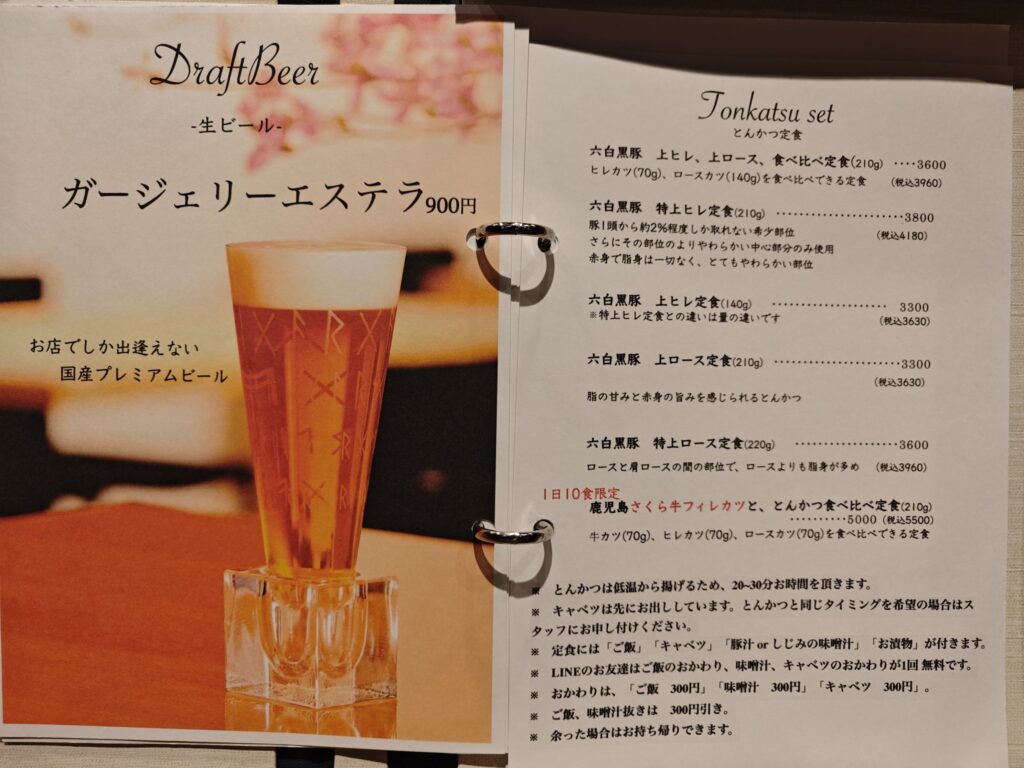 Draft Beer
-生ビール-
ガージェリーエステラ900円
お店でしか出逢えない
国産プレミアムビール
Tonkatsu set
とんかつ定食
六白黒豚　上ヒレ、上ロース、食べ比べ定食(210g) ････3600
ヒレカツ(70g)、ロースカツ(140g)を食べ比べできる定食 (税込3960)
六白黒豚　特上ヒレ定食(210g) ･･････････････････････3800
豚1頭から約2%程度しか取れない希少部位 (税込4180)
さらにその部位のよりやわらかい中心部分のみ使用
赤身で脂身は一切なく、とてもやわらかい部位
六白黒豚　上ヒレ定食(140g) ････････････････････ 3300
※特上ヒレ定食との違いは量の違いです (税込3630)
六白黒豚　上ロース定食(210g) ･･････････････････････3300
(税込3630)
脂の甘みと赤身の旨みを感じられるとんかつ
六白黒豚　特上ロース定食(220g) ･･････････････････3600
ロースと肩ロースの間の部位で、ロースよりも脂身が多め (税込3960)
1日10食限定
鹿児島さくら牛フィレカツと、とんかつ食べ比べ定食(210g)
･･････････5000 (税込5500)
牛カツ(70g)、ヒレカツ(70g)、ロースカツ(70g)を食べ比べできる定食
※　とんかつは低温から揚げるため、20~30分お時間を頂きます。
※　キャベツは先にお出ししています。とんかつと同じタイミングを希望の場合はス
タッフにお申し付けください。
※　定食には「ご飯」「キャベツ」「豚汁 or しじみの味噌汁」「お漬物」が付きます。
※　LINEのお友達はご飯のおかわり、味噌汁、キャベツのおかわりが1回 無料です。
※　おかわりは、「ご飯　300円」「味噌汁　300円」「キャベツ　300円」。
※　ご飯、味噌汁抜きは　300円引き。
※　余った場合はお持ち帰りできます。